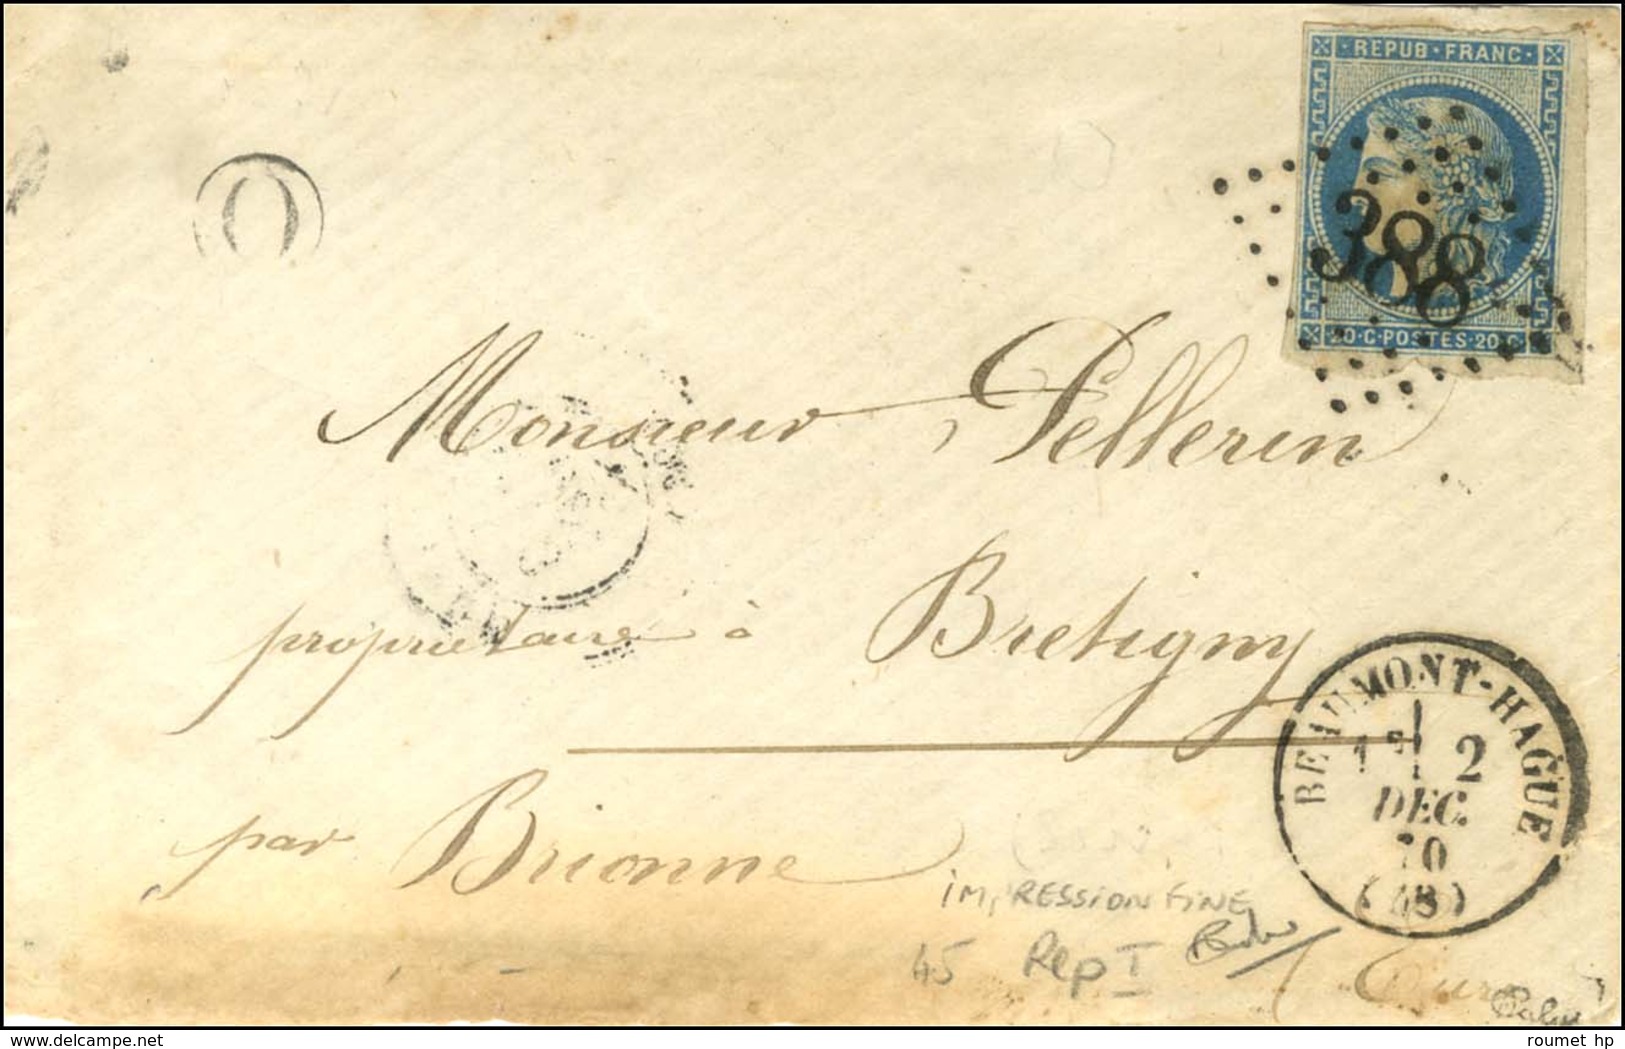 REPUB · FRANC ·
388
20 · C · POSTES · 20 · C
O
Monsieur Pellerin
propriétaire à Bretigny
par Brionne
BEAUMONT-HAGUE
1E 2
DEC.
70
(48)
IMPRESSION FINE
45 Rep I
(Eure)
roumet hp